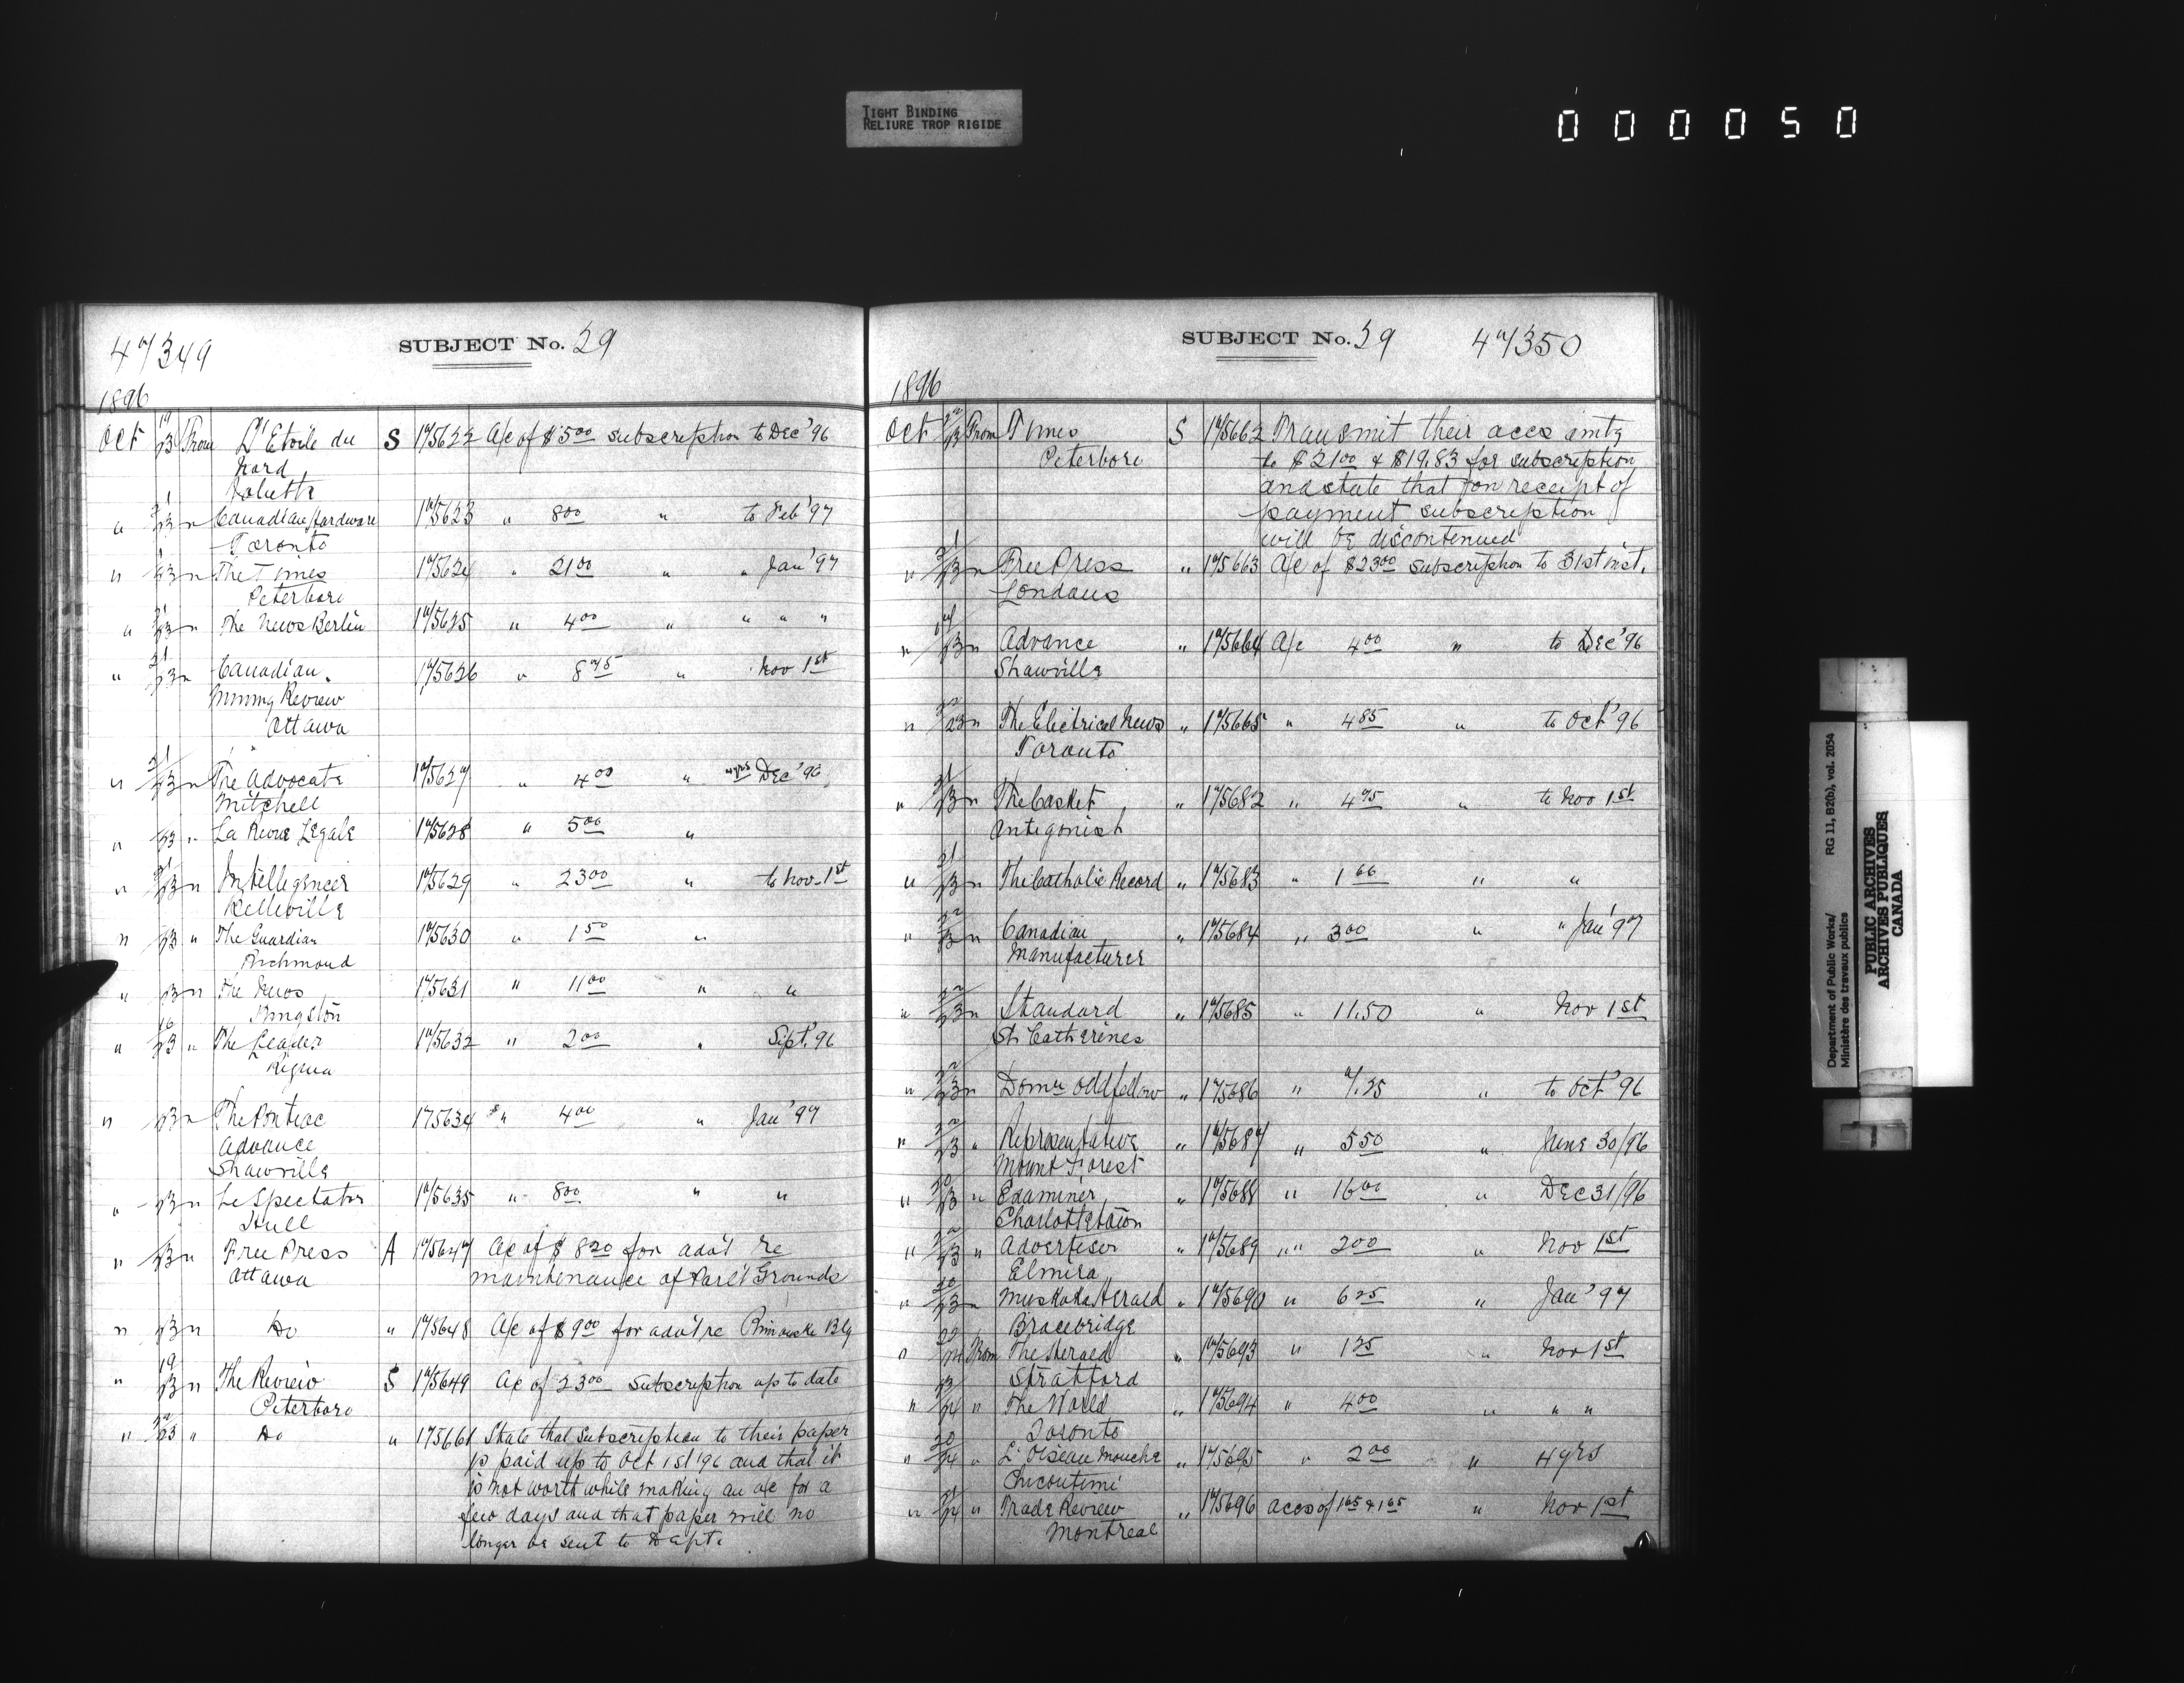 TIGHT BINDING
RELIURE TROP RIGIDE
000050
47349
SUBJECT No. 29
1896
Oct 19/23 From L'Etoile du S 175622 A/c of $5.00 subscription to Dec '96
Nord
Joliette
" 21/23 " Canadian Hardware 175623 " 8.00 " to Feb '97
Toronto
" 21/23 " The Times 175624 " 21.00 " " Jan '97
Peterboro
" 21/23 " The News Berlin 175625 " 4.00 " " " "
" 21/23 " Canadian 175626 " 8.75 " Nov 1st
Mining Review
Ottawa
" 21/23 " The Advocate 175627 " 4.00 " 4 yrs Dec '96
Mitchell
" /23 " La Revue Legale 175628 " 5.00 "
" 21/23 " Intelligencer 175629 " 23.00 " to Nov. 1st
Belleville
" /23 " The Guardian 175630 " 1.50 "
Richmond
" /23 " The News 175631 " 11.00 " "
Kingston
" 16/23 " The Leader 175632 " 2.00 " Sept. '96
Regina
" /23 " The Pontiac 175634 " 4.00 " Jan '97
Advance
Shawville
" /23 " Le Spectator 175635 " 8.00 " "
Hull
" /23 " Free Press A 175647 A/c of $ 8.20 for adv't re
Ottawa maintenance of Parl't Grounds
" /23 " Do " 175648 A/c of $9.00 for adv't re Rimouski Blg
" 19/23 " The Review S 175649 A/c of 23.00 subscription up to date
Peterboro
" 22/23 " Do " 175661 State that subscription to their paper
is paid up to Oct 1st '96 and that it
is not worth while making an a/c for a
few days and that paper will no
longer be sent to Dept.
SUBJECT No. 29 47350
1896
Oct 22/23 From Times S 175662 Transmit their accs amtg
Peterboro to $21.00 & $19.83 for subscription
and state that on receipt of
payment subscription
will be discontinued
" 21/23 " Free Press " 175663 A/c of $23.00 subscription to 31st inst.
London
" /23 " Advance " 175664 A/c 4.00 " to Dec '96
Shawville
" 22/23 " The Electrical News " 175665 " 4.85 " to Oct '96
Toronto
" 21/23 " The Casket " 175682 " 4.75 " to Nov 1st
Antigonish
" 21/23 " The Catholic Record " 175683 " 1.66 " "
" 22/23 " Canadian " 175684 " 3.00 " " Jan '97
Manufacturer
" 22/23 " Standard " 175685 " 11.50 " Nov 1st
St Catherines
" 22/23 " Domn Oddfellow " 175686 " 7.35 " to Oct '96
" 22/23 " Representative " 175687 " 5.50 " June 30/96
Mount Forest
" 20/23 " Examiner " 175688 " 16.00 " Dec 31/96
Charlottetown
" 22/23 " Advertiser " 175689 " " 2.00 " Nov 1st
Elmira
" 20/23 " Muskoka Herald " 175690 " 6.25 " Jan '97
Bracebridge
" 22/24 From The Herald " 175693 " 1.25 " Nov 1st
Stratford
" 23/24 " The World " 175694 " 4.00 " " "
Toronto
" 20/24 " L'Oiseau Mouche " 175695 " 2.00 " 4 yrs
Chicoutimi
" 21/24 " Trade Review " 175696 accs of 1.65 & 1.65 " Nov 1st
Montreal
Department of Public Works/ RG 11, B2(b), vol. 2054
Ministère des travaux publics
PUBLIC ARCHIVES
ARCHIVES PUBLIQUES
CANADA